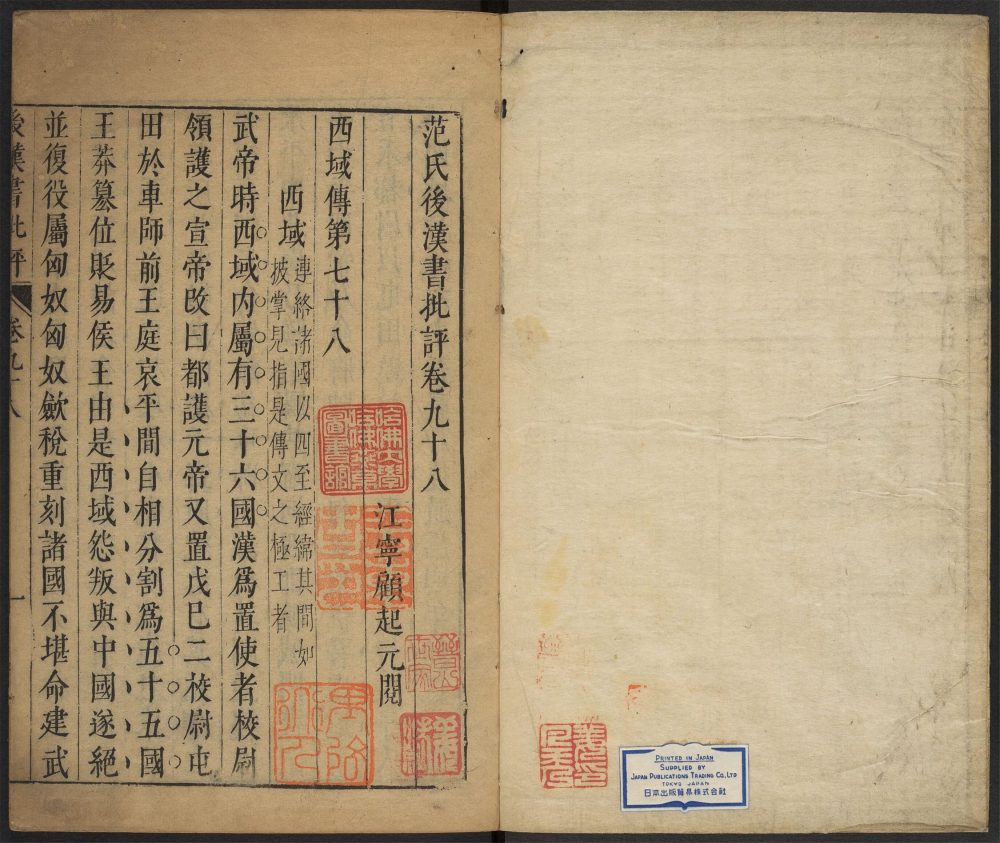 范氏後漢書批評卷九十八
江寧顧起元閱
西域傳第七十八
西域
連絡諸國以四至經緯其間如
披掌見指是傳文之極工者
武帝時西域內屬有三十六國漢爲置使者校尉
領護之宣帝改曰都護元帝又置戊巳二校尉屯
田於車師前王庭哀平間自相分割爲五十五國
王莽篡位貶易侯王由是西域怨叛與中國遂絕
並復役屬匈奴匈奴歛稅重刻諸國不堪命建武
後漢書批評
卷九十八
一
哈佛大學
哈佛燕京
圖書館
PRINTED IN JAPAN
SUPPLIED BY
JAPAN PUBLICATIONS TRADING CO., LTD
TOKYO JAPAN
日本出版貿易株式会社